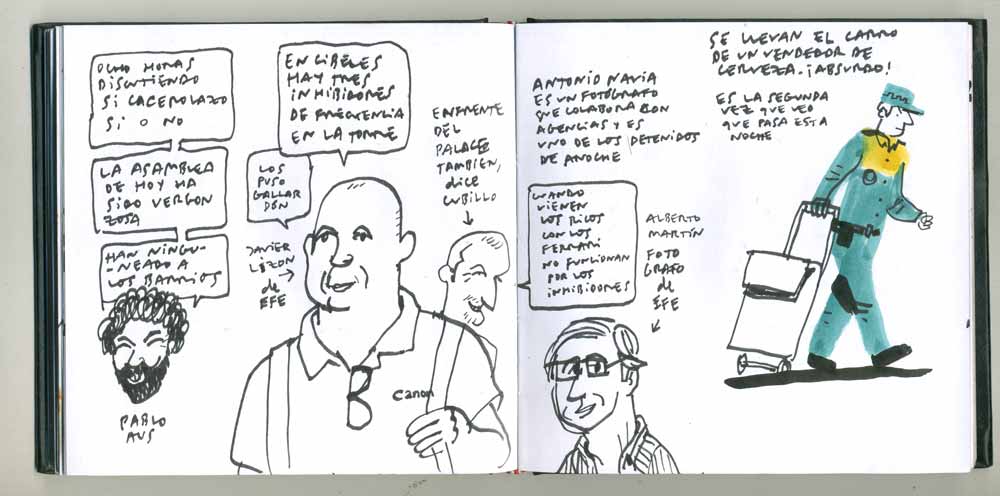 OCHO HORAS
DISCUTIENDO
SI CACEROLAZO
SI O NO
LA ASAMBLEA
DE HOY HA
SIDO VERGON
ZOSA
HAN NINGU-
-NEADO A
LOS BARRIOS
PABLO
AUS
EN CIBELES
HAY TRES
INHIBIDORES
DE FRECUENCIA
EN LA TORRE
LOS
PUSO
GALLAR
DÓN
JAVIER
LIZON
de
EFE
ENFRENTE
DEL
PALACE
TAMBIEN,
dice
CUBILLO
Canon
ANTONIO NAVIA
ES UN FOTÓGRAFO
QUE COLABORA CON
AGENCIAS Y ES
UNO DE LOS DETENIDOS
DE ANOCHE
CUANDO
VIENEN
LOS RICOS
CON LOS
FERRARI
NO FUNCIONAN
POR LOS
INHIBIDORES
ALBERTO
MARTÍN
FOTO
GRAFO
de
EFE
SE LLEVAN EL CARRO
DE UN VENDEDOR DE
CERVEZA. ¡ABSURDO!
ES LA SEGUNDA
VEZ QUE VEO
QUE PASA ESTA
NOCHE